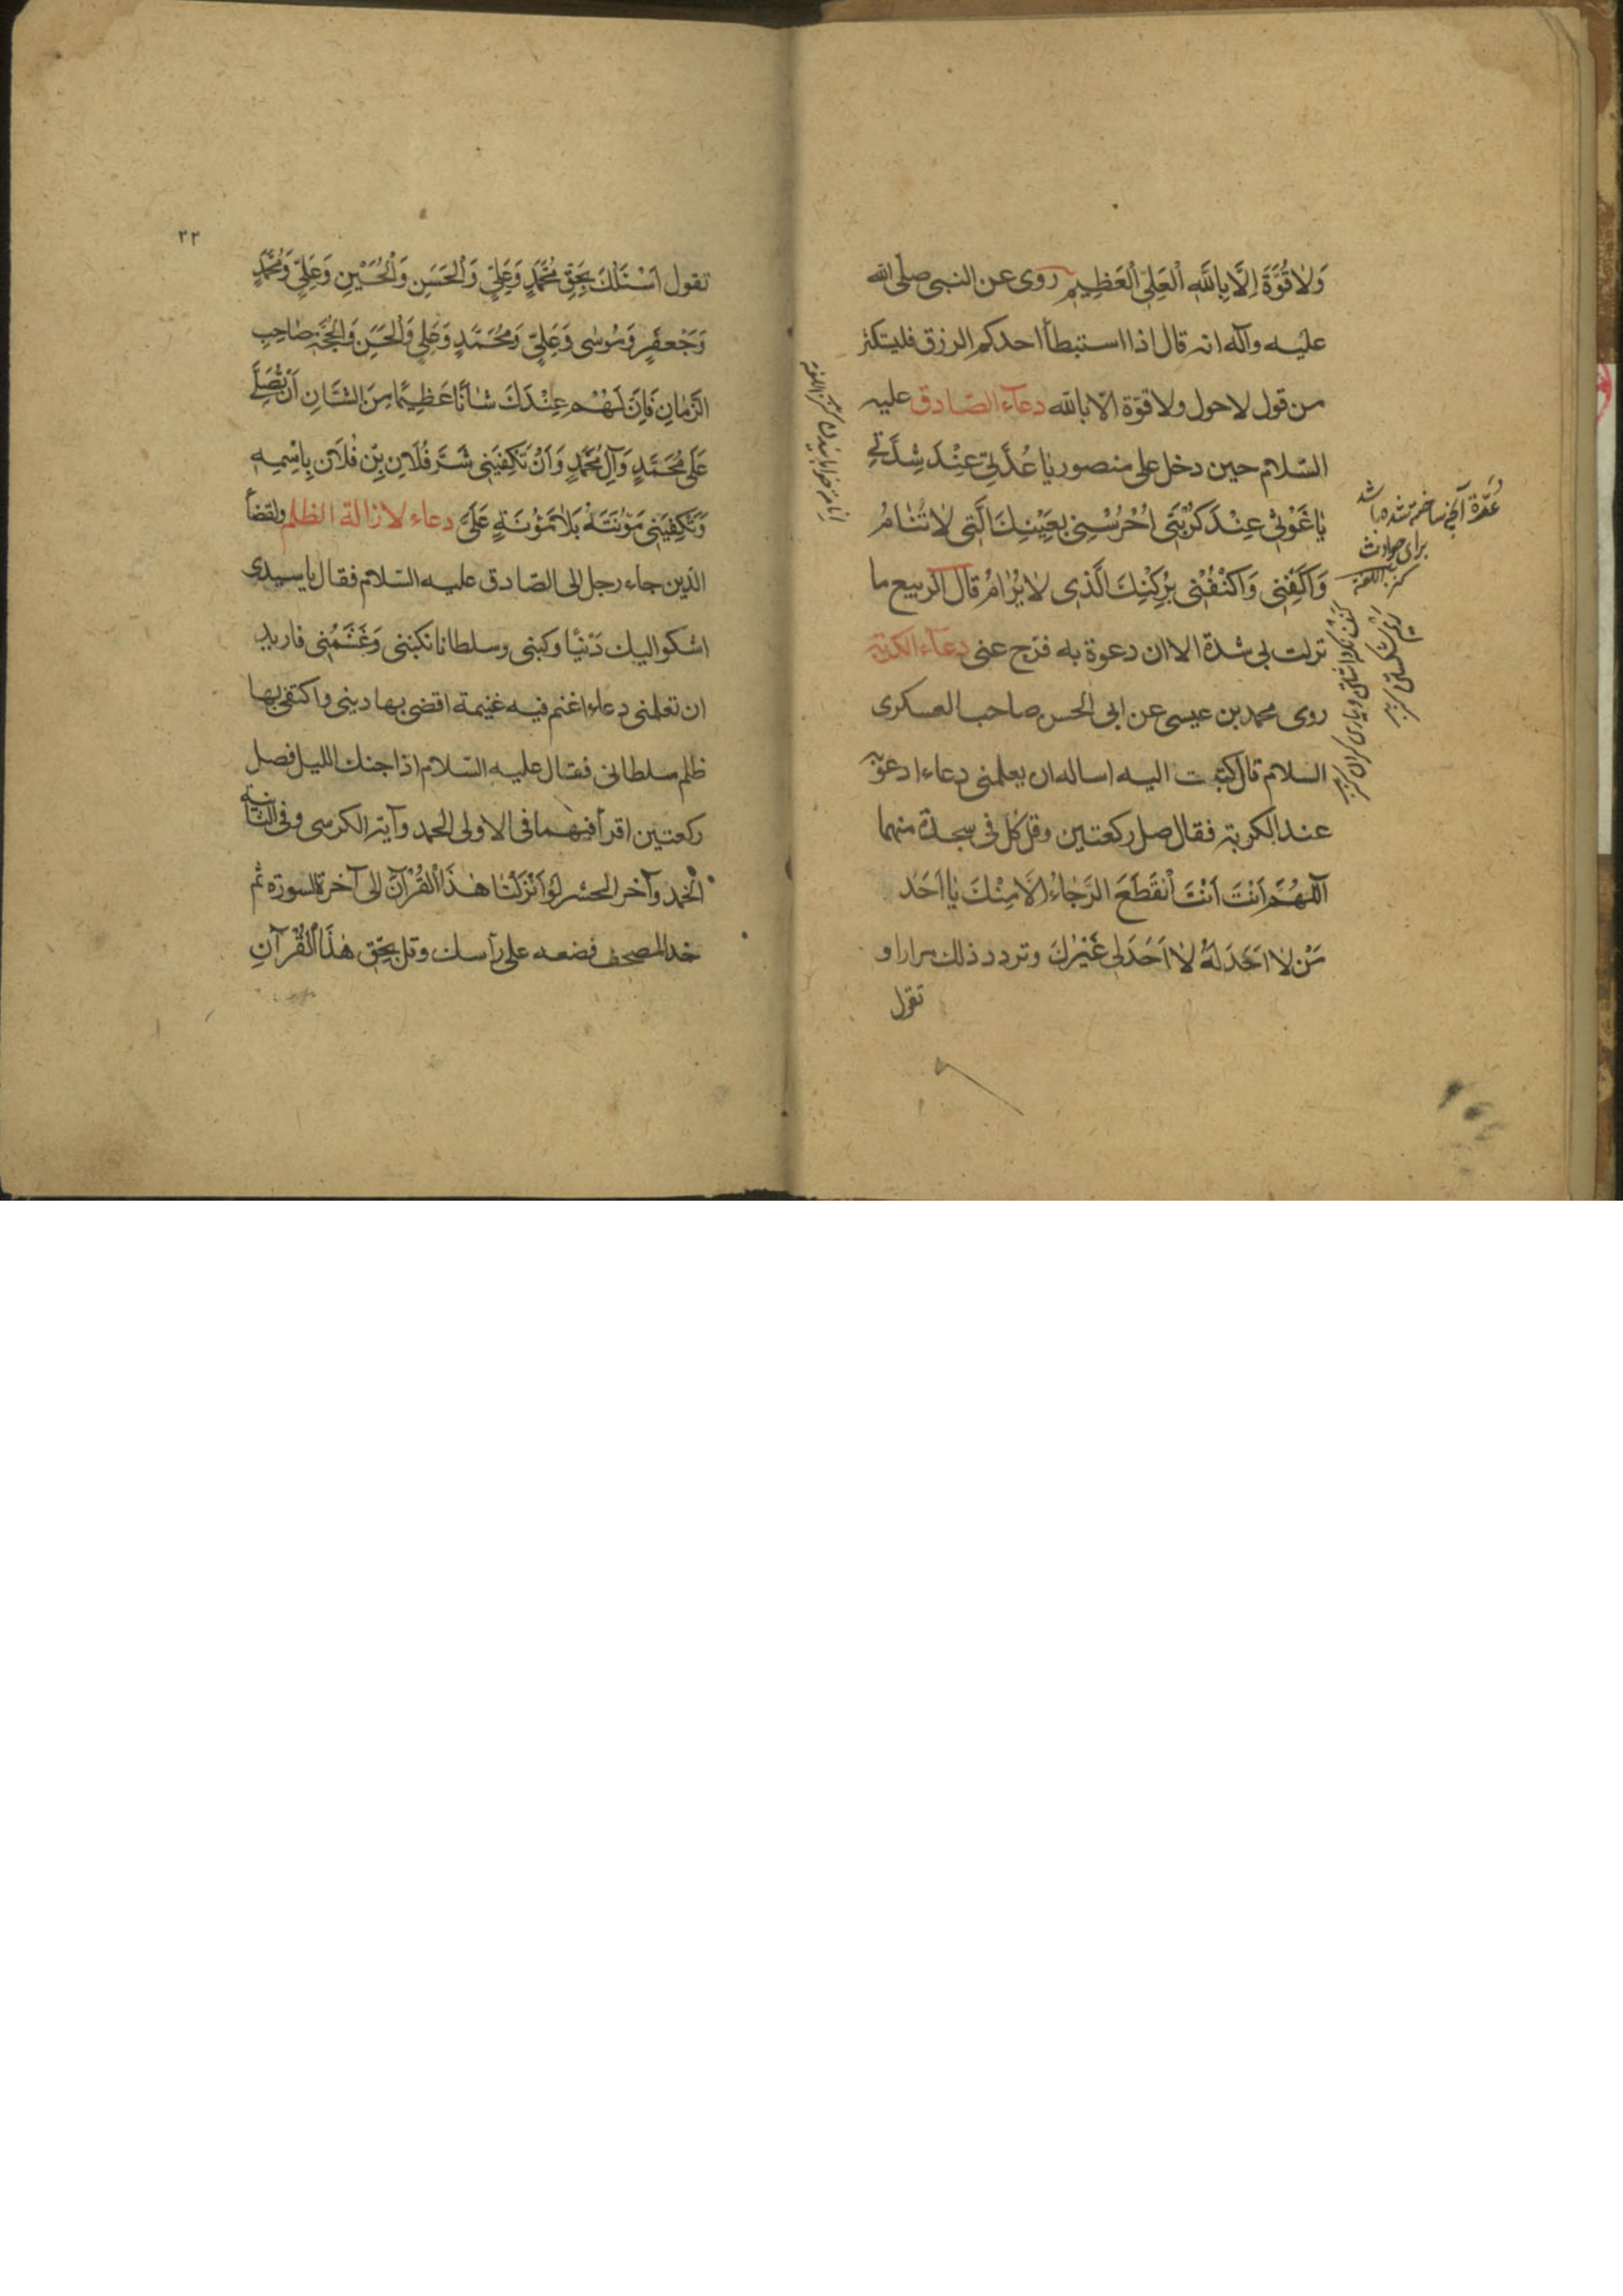 وَلاٰ قُوَّةَ اِلَّا بِاللّٰهِ الْعَلِیِّ الْعَظِیمِ روی عن النبی صلی الله
علیه وآله انه قال اذا استبطأ احدکم الرزق فلیتکثر
من قول لاحول ولا قوّة الّا بالله دعآء الصّادق علیه
السّلام حین دخل علی منصور یٰا عُدَّتِی عِنْدَ شِدَّتِی
یٰا غَوْثِی عِنْدَ کُرْبَتِی اُحْرُسْنِی بِعَیْنِكَ الَّتِی لاٰ تَنٰامُ
وَاکْفِنِی وَاکْنُفْنِی بِرُکْنِكَ الَّذِی لاٰ یُرٰامُ قال الربیع ما
نزلت بی شدة الا ان دعوة به فرّج عنی دعآء الکربة
روی محمد بن عیسی عن ابی الحسن صاحب العسکری
السلام قال کتبت الیه اساله ان یعلمنی دعاء ادعو به
عند الکربة فقال صل رکعتین وقل کل فی سجدة منهما
اَللّٰهُمَّ اَنْتَ اَنْتَ اْنقَطَعَ الرَّجٰاءُ اِلاَّ مِنْكَ یٰا اَحَدَ
مَنْ لاٰ اَحَدَ لَهُ لاٰ اَحَدَ لِی غَیْرُكَ وتردد ذلك مرارا و
تقول
عُدّة آنچه ساخته شده باشد
برای حوادث
کنز اللغة
۲۲
تقول اَسْئَلُكَ بِحَقِّ مُحَمَّدٍ وَعَلِیٍّ وَالْحَسَنِ وَالْحُسَیْنِ وَعَلِیٍّ وَمُحَمَّدٍ
وَجَعْفَرٍ وَمُوسٰی وَعَلِیٍّ وَمُحَمَّدٍ وَعَلِیٍ وَالْحَسَنِ وَالْحُجَّةِ صٰاحِبِ
الزَّمٰانِ فَاِنَّ لَهُمْ عِنْدَكَ شٰانًا عَظِیمًا مِنَ الشَّانِ اَنْ تُصَلِّیَ
عَلٰی مُحَمَّدٍ وَآلِ مُحَمَّدٍ وَاَنْ تَکْفِیَنِی شَرَّ فُلاٰنِ بْنِ فُلاٰنٍ بِاسْمِهِ
وَتَکْفِیَنِی مَؤُنَتَهُ بَلاٰ مَؤُنَةٍ عَلَیَّ دعاء لازالة الظلم ولقضاء
الدین جاء رجل الی الصّادق علیه السّلام فقال یا سیدی
اشکوا الیك دَیْنًا رکبنی وسلطانا نکبنی وَغَشَمَنِی فارید
ان تعلمنی دعاء اغنم فیه غنیمة اقضی بها دینی واکتفی بها
ظلم سلطانی فقال علیه السّلام اذا جنك اللیل فصل
رکعتین اقرأ فیهما فی الاولی الحمد وآیة الکرسی وفی الثانیة
الحمد وآخر الحشر لَوْ اَنْزَلْنٰا هٰذَا الْقُرْآنَ الی آخرة السورة ثم
خذ المصحف فضعه علی رأسك وقل بِحَقِّ هٰذَا الْقُرْآنِ